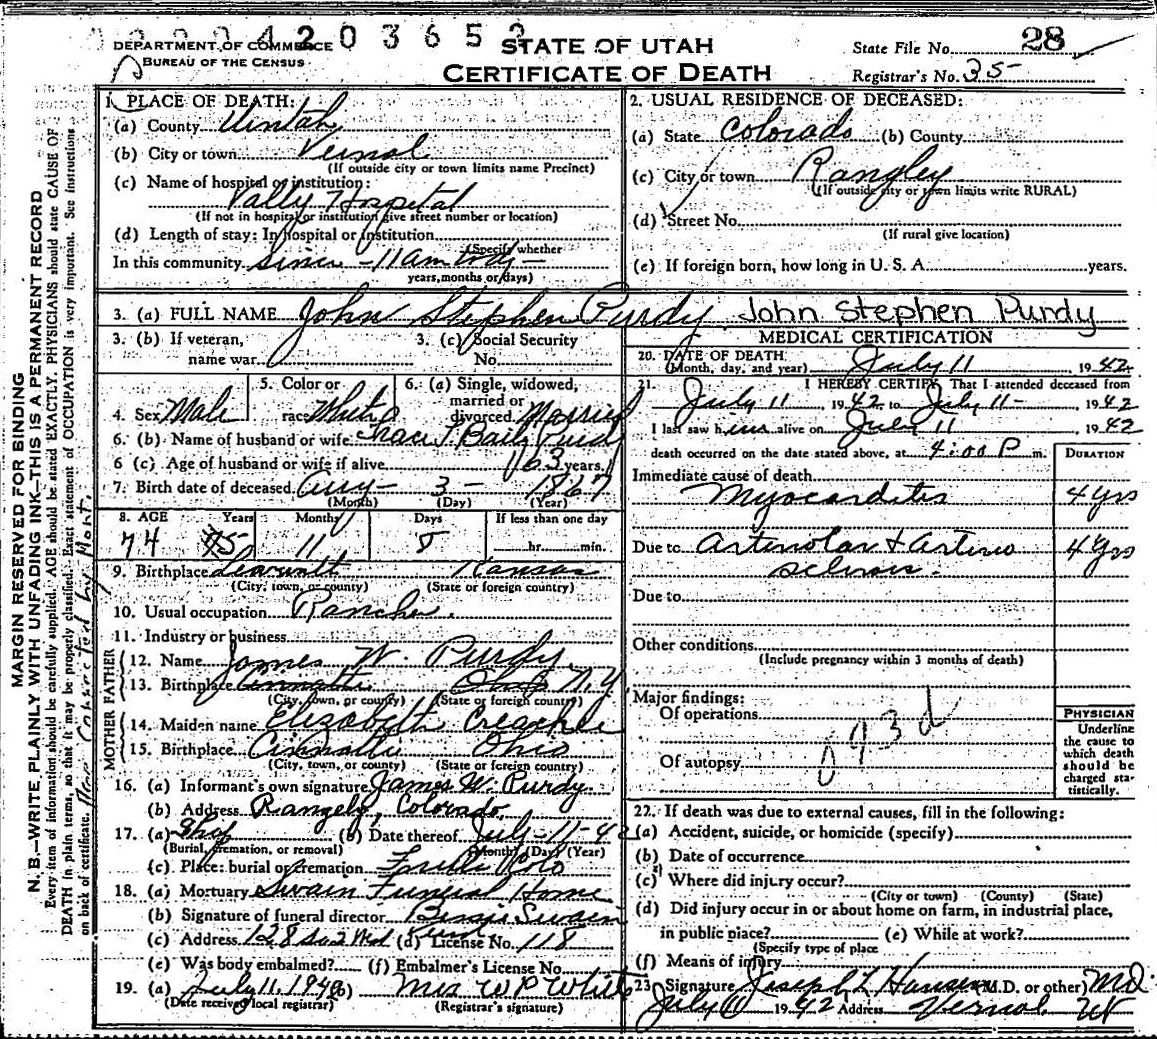 4203652
DEPARTMENT OF COMMERCE
BUREAU OF THE CENSUS
STATE OF UTAH
CERTIFICATE OF DEATH
State File No. 28
Registrar's No. 35
1. PLACE OF DEATH:
(a) County Uintah
(b) City or town Vernal
(If outside city or town limits name Precinct)
(c) Name of hospital or institution:
Vally Hospital
(If not in hospital or institution give street number or location)
(d) Length of stay: In hospital or institution
(Specify whether
In this community since - 11 am tody -
years, months or days)
2. USUAL RESIDENCE OF DECEASED:
(a) State Colorado (b) County
(c) City or town Rangley
(If outside city or town limits write RURAL)
(d) Street No.
(If rural give location)
(e) If foreign born, how long in U. S. A. years.
3. (a) FULL NAME John Stephen Purdy John Stephen Purdy
3. (b) If veteran,
name war
3. (c) Social Security
No.
4. Sex Male
5. Color or
race White
6. (a) Single, widowed,
married or
divorced. Married
6. (b) Name of husband or wife T. Baily Purdy
6 (c) Age of husband or wife if alive 63 years.
7. Birth date of deceased Aug - 3 - 1867
(Month) (Day) (Year)
8. AGE Years Months Days If less than one day
74 75 11 8 hr. min.
9. Birthplace Kansas
(City, town, or county) (State or foreign country)
10. Usual occupation Rancher.
11. Industry or business
FATHER
12. Name James W. Purdy
13. Birthplace Cinnatti Ohio N.Y.
(City, town, or county) (State or foreign country)
MOTHER
14. Maiden name Elizabeth
15. Birthplace Cinnattie Ohio
(City, town, or county) (State or foreign country)
16. (a) Informant's own signature James W. Purdy
(b) Address Rangely, Colorado.
17. (a) Ship (b) Date thereof July - 11 - 42
(Burial, cremation, or removal) (Month) (Day) (Year)
(c) Place: burial or cremation Colo
18. (a) Mortuary Swain Funeral Home
(b) Signature of funeral director Bessie Swain
(c) Address 128 So 2 Wd (d) License No. 118
(e) Was body embalmed? (f) Embalmer's License No.
19. (a) July 11, 1942 (b) Mrs W P White
(Date received local registrar) (Registrar's signature)
MEDICAL CERTIFICATION
20. DATE OF DEATH
(Month, day, and year) July 11 1942
21. I HEREBY CERTIFY, That I attended deceased from
July 11, 1942 to July 11 - , 1942
I last saw him alive on July 11 , 1942
death occurred on the date stated above, at 4:00 P m.
DURATION
Immediate cause of death
Myocarditis 4 yrs
Due to Arteriolar & Arterio 4 yrs
sclerosis.
Due to
Other conditions
(Include pregnancy within 3 months of death)
Major findings:
Of operations
Of autopsy
093d
PHYSICIAN
Underline
the cause to
which death
should be
charged sta-
tistically.
22. If death was due to external causes, fill in the following:
(a) Accident, suicide, or homicide (specify)
(b) Date of occurrence
(c) Where did injury occur?
(City or town) (County) (State)
(d) Did injury occur in or about home on farm, in industrial place,
in public place? (e) While at work?
(Specify type of place
(f) Means of injury
23 Signature Joseph L Hansen (M.D. or other) MD.
July 11 1942 Address Vernal Ut
MARGIN RESERVED FOR BINDING
N. B.—WRITE PLAINLY WITH UNFADING INK—THIS IS A PERMANENT RECORD
Every item of information should be carefully supplied. AGE should be stated EXACTLY. PHYSICIANS should state CAUSE OF
DEATH in plain terms, so that it may be properly classified. Exact statement of OCCUPATION is very important. See instructions
on back of certificate.